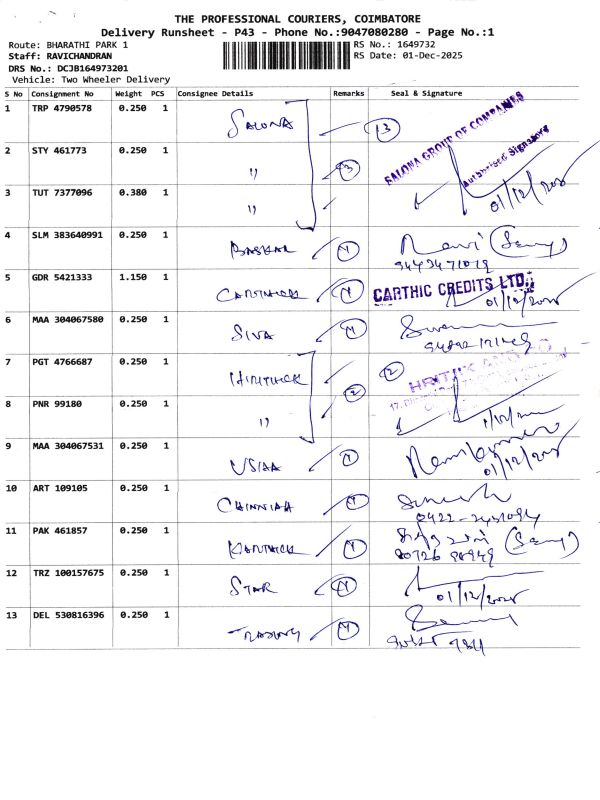 THE PROFESSIONAL COURIERS, COIMBATORE
Delivery Runsheet - P43 - Phone No.:9047080280 - Page No.:1
Route: BHARATHI PARK 1 RS No.: 1649732
Staff: RAVICHANDRAN RS Date: 01-Dec-2025
DRS No.: DCJB164973201
Vehicle: Two Wheeler Delivery
S No Consignment No Weight PCS Consignee Details Remarks Seal & Signature
1 TRP 4790578 0.250 1 SALONA 13 SALONA GROUP OF COMPANIES
Authorised Signatory
2 STY 461773 0.250 1 " 3
01/12/2025
3 TUT 7377096 0.380 1 "
4 SLM 383640991 0.250 1 BASKAR Ravi
5 GDR 5421333 1.150 1 CARTHICK CARTHIC CREDITS LTD.,
01/12/2025
6 MAA 304067580 0.250 1 SIVA
7 PGT 4766687 0.250 1 2 HRITIK AND CO
8 PNR 99180 0.250 1 " 2
9 MAA 304067531 0.250 1
01/12/2025
10 ART 109105 0.250 1 CHINNIAH
11 PAK 461857 0.250 1 KARTHICK
12 TRZ 100157675 0.250 1 STAR
01/12/2025
13 DEL 530816396 0.250 1 TRADING